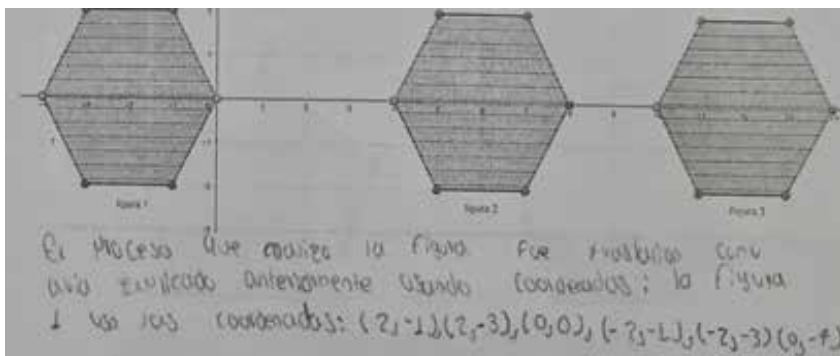 figura 1
figura 2
Figura 3
El proceso que realizo la figura fue trasladarlas como
avia explicado anteriormente usando coordenadas; la figura
1 uso las coordenadas: (2,-1),(2,-3),(0,0),(-2,-1),(-2,-3)(0,-4)